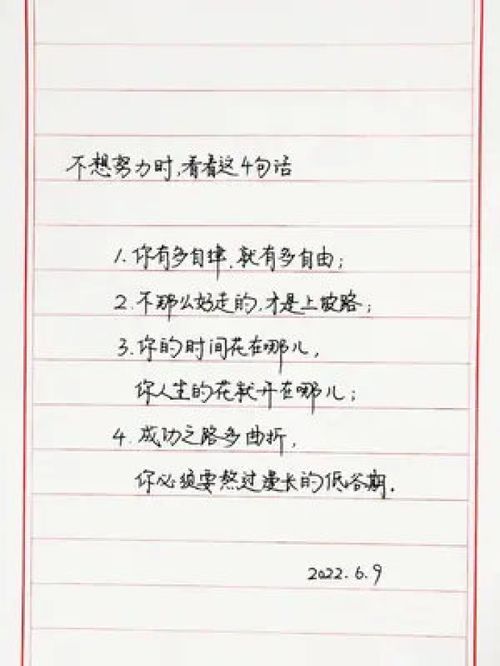 不想努力时,看看这4句话
1.你有多自律,就有多自由;
2.不那么好走的,才是上坡路;
3.你的时间花在哪儿,
你人生的花就开在哪儿;
4.成功之路多曲折,
你必须要熬过漫长的低谷期.
2022.6.9